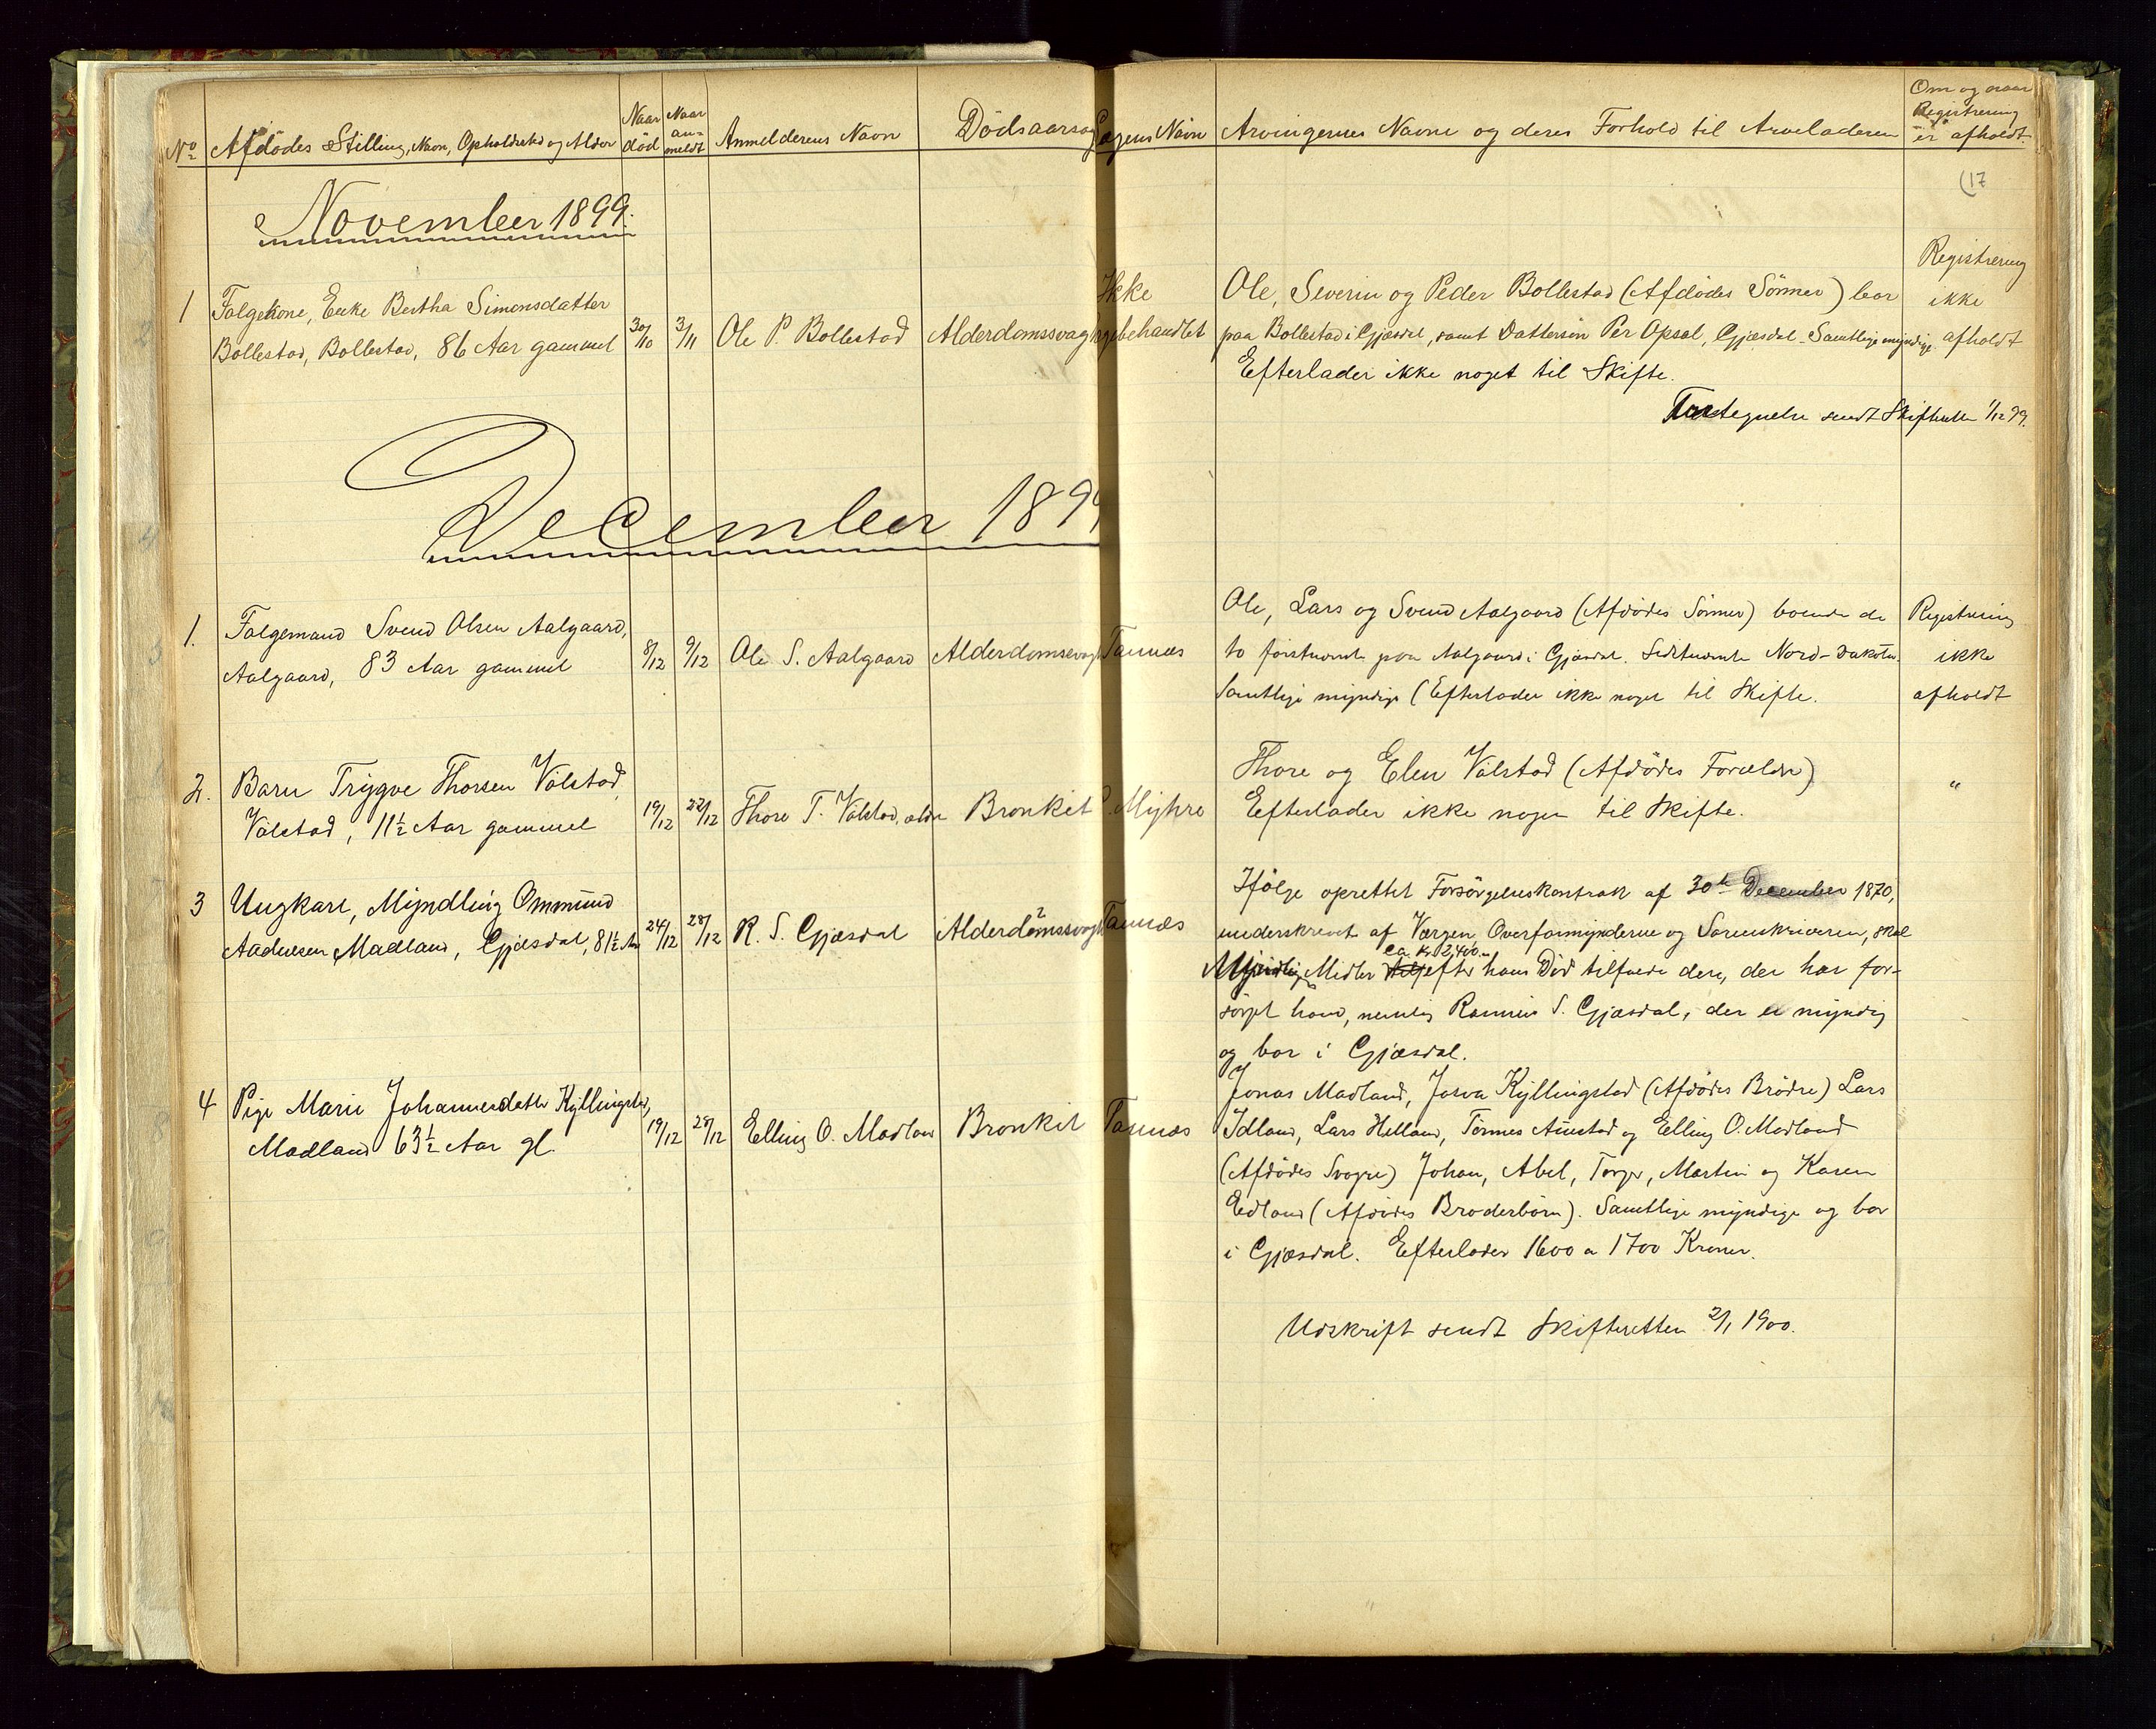 No Afdödes Stilling, Navn, Opholdssted og Alder Naar död Naar an- meldt Anmelderens Navn Dödsaarsag Lægens Navn Arvingernes Navne og deres Forhold til Arveladeren Om og naar Registrering er afholdt.
(17
November 1899.
1 Folgekone, Enke Bertha Simonsdatter
Bollestad, Bollestad, 86 Aar gammel 30/10 3/11 Ole P. Bollestad Alderdomssvaghed Ikke lægebehandlet
Ole, Severin og Peder Bollestad (Afdödes Sönner) bor
paa Bollestad i Gjæsdal, samt Dattersön Per Opsal, Gjæsdal. Samtlige myndige
Efterlader ikke noget til Skifte.
Registrering
ikke
afholdt
Fortegnelse sendt Skifteretten 1/12 99.
December 1899
1. Folgemand Svend Olsen Aalgaard,
Aalgaard, 83 Aar gammel 8/12 9/12 Ole S. Aalgaard Alderdomssvagh Tannæs
Ole, Lars og Svend Aalgaard (Afdödes Sönner) boende de
to förstnævnte paa Aalgaard i Gjæsdal. Sidstnævnte Nord-Dakota.
Samtlige myndige (Efterlader ikke noget til Skifte.
Registrering
ikke
afholdt
2. Barn Trygve Thorsen Válstad,
Válstad, 11½ Aar gammel 19/12 22/12 Thore T. Válstad, Bronkit Myhre
Thore og Elen Válstad (Afdödes Forældre)
Efterlader ikke noget til Skifte.
"
3 Ungkarl, Myndling Ommund
Aadnesen Madland, Gjæsdal, 81½ Aar 24/12 28/12 R. S. Gjæsdal Alderdomssvagh Tannæs
Ifölge oprettet Forsörgelseskontrakt af 30te December 1870,
underskrevet af Værgen, Overformynderne og Sorenskriveren, skal
Myndlings Midler ca. Kr. 2,400.- efter hans Död tilfalde dem, der har for-
sörget ham, nemlig S. Gjæsdal, der er myndig
og bor i Gjæsdal.
4 Pige Marie Johannesdatter Kyllingstad,
Madland 63½ Aar gl. 19/12 29/12 Elling O. Madland Bronkit Tannæs
Jonas Madland, Josva Kyllingstad (Afdödes Brödre) Lars
Idland, Lars Helland, Tönnes Auestad og Elling O. Madland
(Afdödes Svogre) Johan, Abel, Torger, Martin og Karen
Edland (Afdödes Broderbörn). Samtlige myndige og bor
i Gjæsdal. Efterlader 1600 a 1700 Kroner.
Udskrift sendt Skifteretten 2/1 1900.